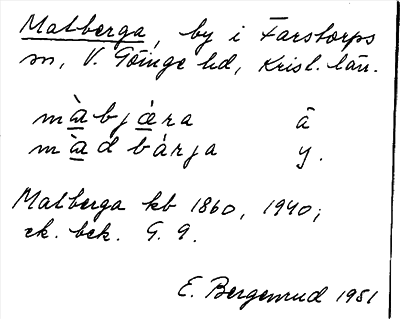 Matberga, by i Farstorps
sn, V. Göinge hd, Krist. län.
màbjæ̀ra ä
màd bárja y.
Matberga kb 1860, 1940;
ek. bek. G. 9.
E. Bergenrud 1951